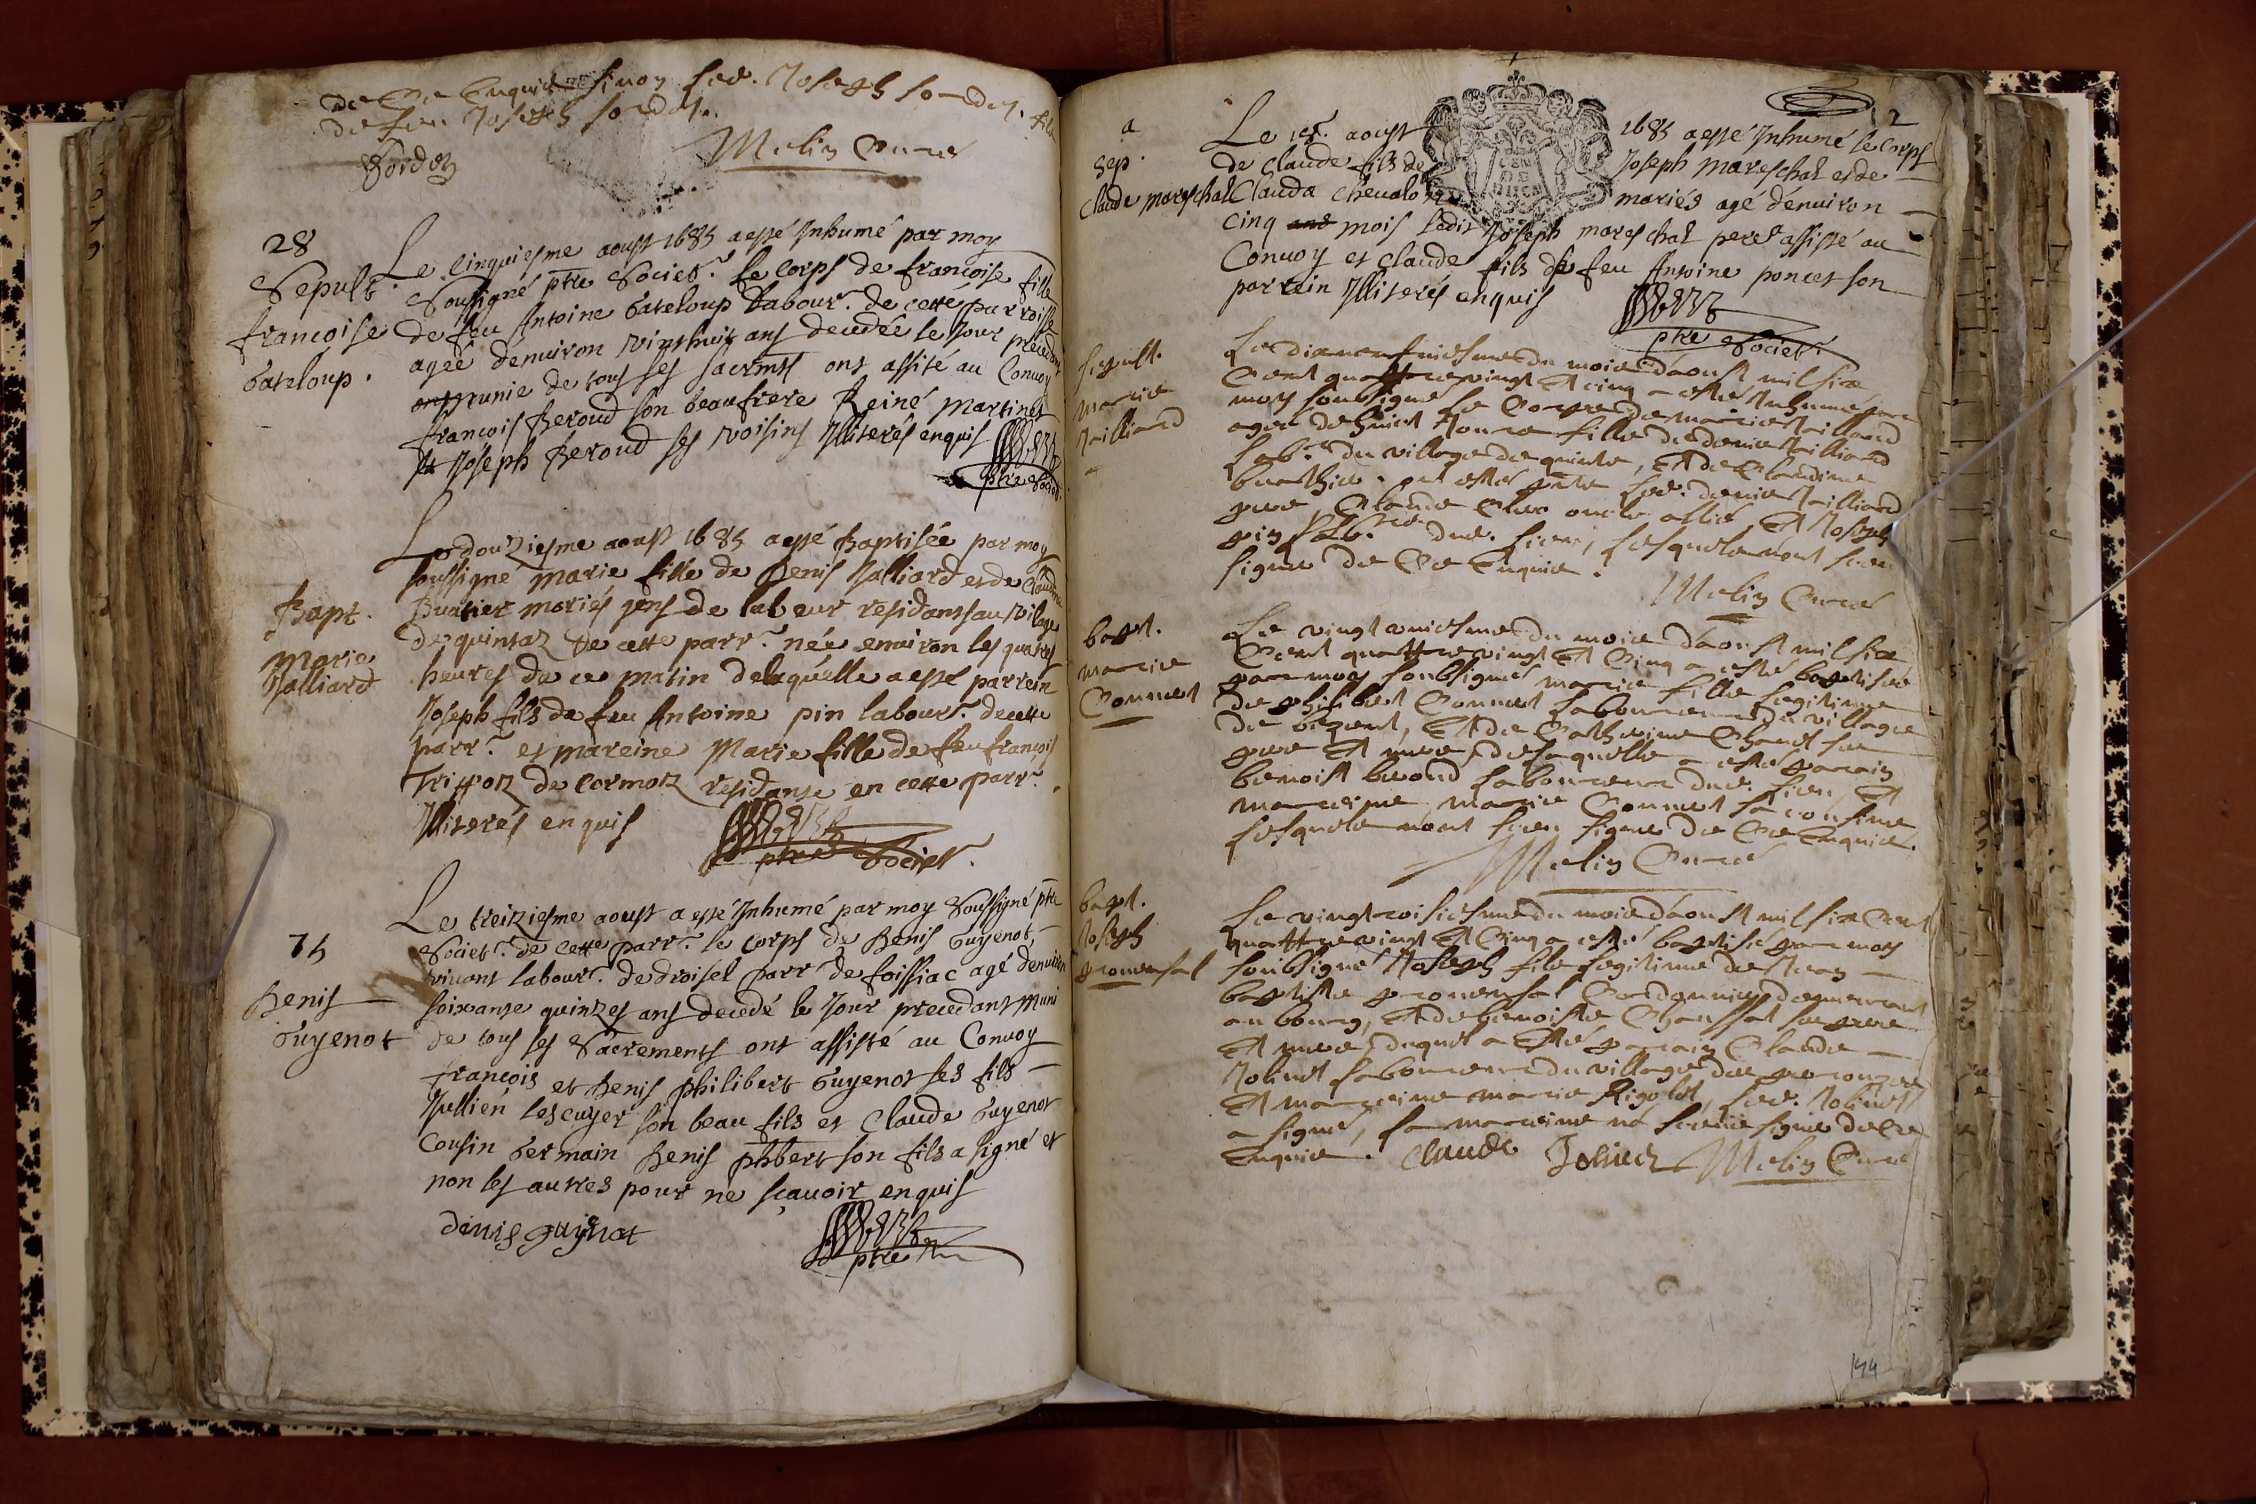 de ce enquis sinon led. Joseph sordet fils
de feu Joseph sordet.
Sordet
Melin Curé
28
Sepult.
francoise
Gateloup.
Le cinquiesme aoust 1685 a esté Inhumé par moy
soussigné ptre societ.r le corps de francoise fille
de feu Antoine Gateloup labour.r de cette parroisse
ageé denuiron vinthuit ans decedée le Jour precedant
munie de tous ses sacrmts ont assité au Conuoy
francois Beroud son beaufrere Reiné Martinet
et Joseph Beroud ses voisins Illiterés enquis
ptre Societ.
Bapt.
Marie
Jalliard
Le douziesme aoust 1685 a esté Baptisée par moy
soussigné Marie fille de Denis Jalliard et de Claudine
Buatier mariés gens de labeur residants au vilage
de quintaz de cette parr.e née enuiron les quatres
heures de ce matin de laquelle a esté parrein
Joseph fils de feu Antoine pin labour.r de cette
parr.e et mareine Marie fille de feu francois
de Cormoz residante en cette parr.e
Illiterés enquis
ptre Societ.r
75
Denis
Guyenot
Le treiziesme aoust a esté Inhumé par moy soussigné ptre
Societ.r de cette parr.e le corps de Denis Guyenot
viuant labour.r de droisel parr.e de foissiac agé denuiron
soixante quinzes ans decedé le Jour precedant muni
de tous ses Sacrements ont assisté au Conuoy
francois et Denis philibert Guyenot ses fils
Jullien lescuyer son beau fils et Claude Guyenot
Cousin Germain Denis phbert son fils a signé et
non les autres pour ne sçauoir enquis
denis guynot
ptre
2
a
Sep.
Claude mareschal
Le 15e. aoust 1685 a esté Inhumé le Corps
de Claude fils de Joseph Mareschal et de
Clauda Cheualo mariés agé dénuiron
cinq ans mois Ledit Joseph mareschal pere assisté au
Conuoy et Claude fils de feu Antoine poncet son
parrain Illiterés enquis
ptre Societ.r
sepult.
Marie
Jailliard
Le dianeufuiesme du mois d'aoust mil six
Cent quattre vingt et cinq a esté Inhumé par
moy soubsigné le Corps de marie Jailliard
ageé de huict Jours fille de denis Jailliard
lab.r du village de quinte, et de Claudine
buathier. ont estés pnts led. denis Jailliard
pere, Claude Clerc oncle allié, et Joseph
pin lab.r dud. lieu, lesquels n'ont sceu
signer de Ce Enquis.
Melin Curé
bapt.
marie
Connet
Le vingt uniesme du mois d'aoust mil six
Cent quattre vingt et Cinq a esté baptisée
par moy soubsigné marie fille legitime
de philibert Connet laboureur du village
de bezent, et de Catherine Chanel ses
pere et mere, de laquelle a esté parain
benoist beroud laboureur dud. lieu, et
marreine marie Connet sa cousine
lesquels n'ont sceu signer de Ce Enquis.
Melin Curé
bapt.
Joseph
promensal
Le vingt troisiesme du mois d'aoust mil six Cent
quattre vingt et Cinq a esté baptisé par moy
soubsigné Joseph fils legitime de Jean
baptiste promensal Cordonnier demeurant
au bourg, et de benoiste Chaussat ses pere
et mere, duquel a esté parain Claude
Jolinet laboureur du village de
et marreine marie Rigollet, led. Jolinet
a signé, la marreine n'a sceu signer de ce
Enquis. Claude Jolinet Melin Curé
144